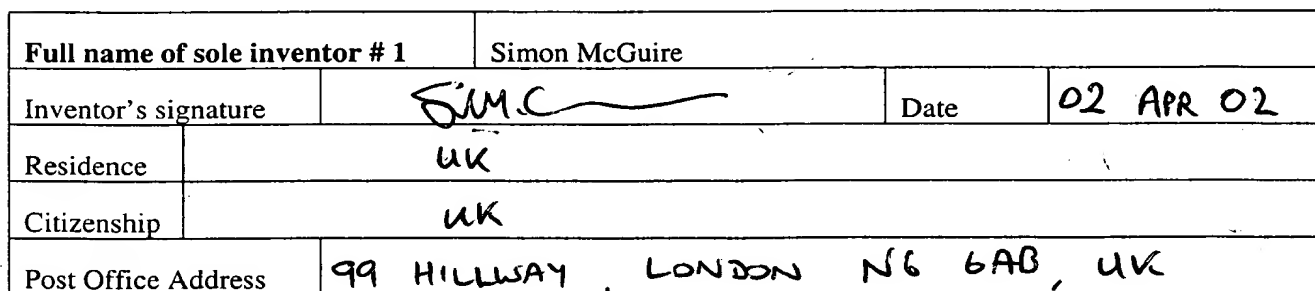 Full name of sole inventor # 1 Simon McGuire
Inventor's signature SiM.C Date 02 APR 02
Residence UK
Citizenship UK
Post Office Address 99 HILLWAY, LONDON N6 6AB, UK